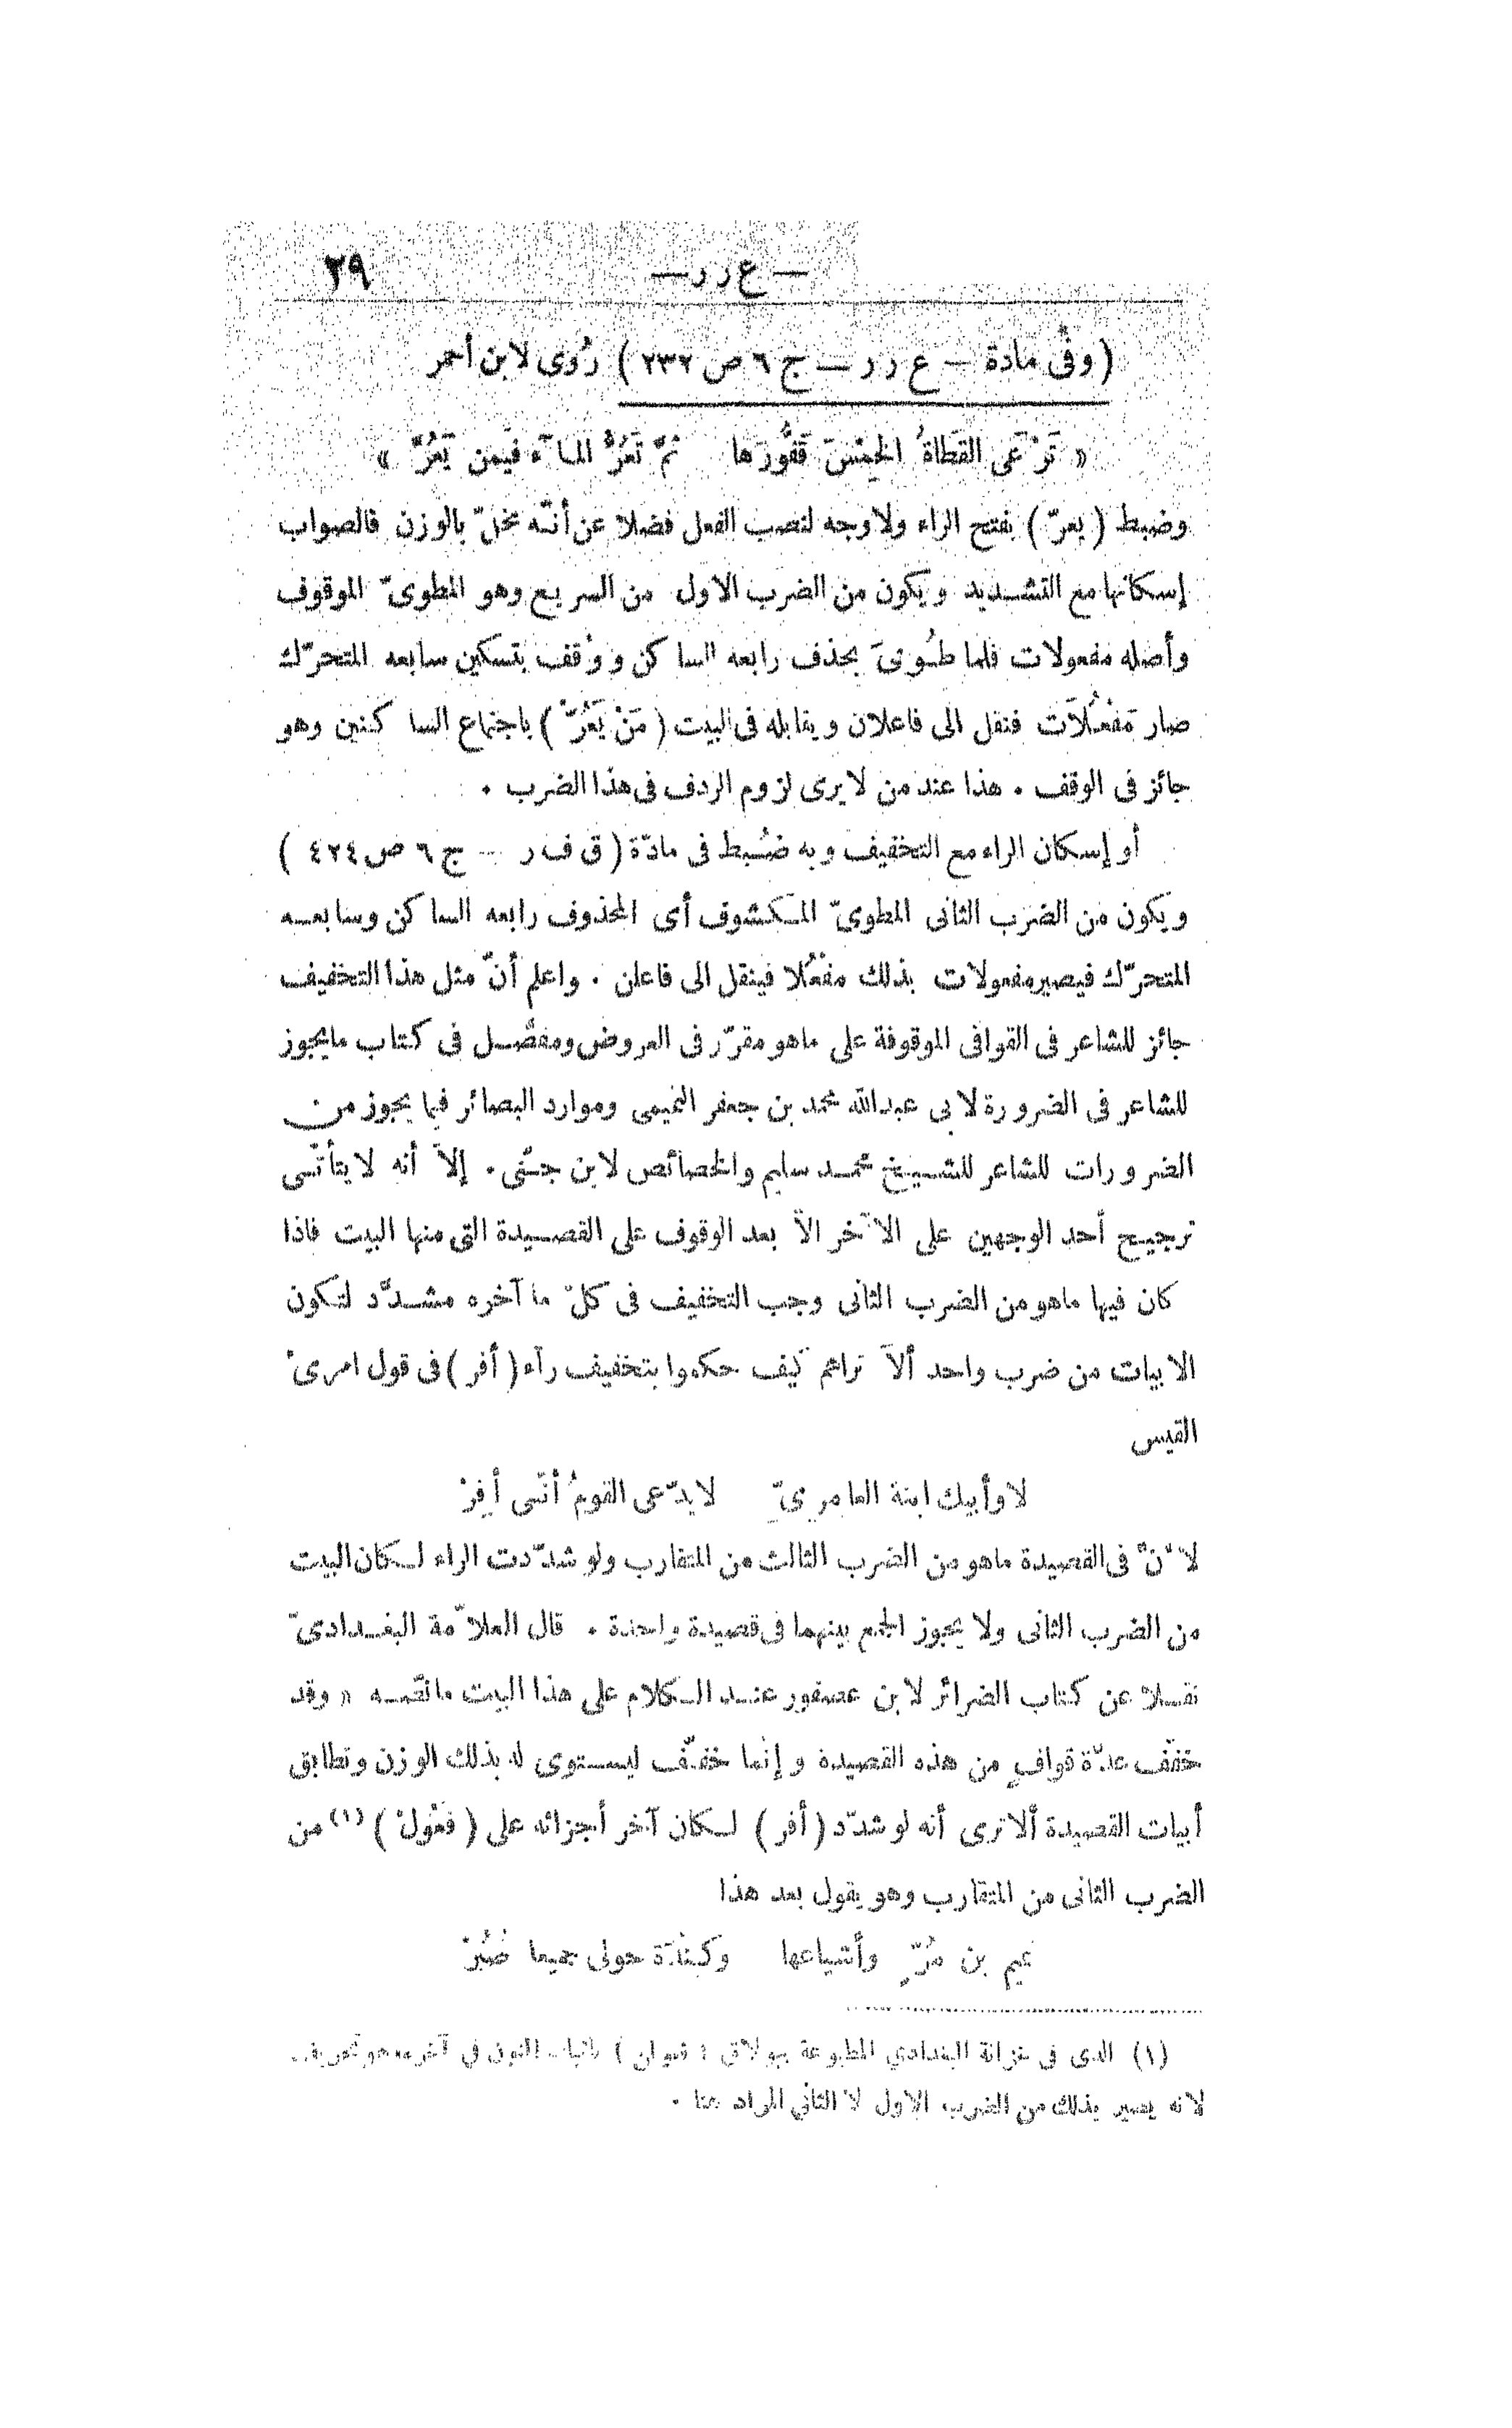 — ع ر ر — ٢٩
( وفى مادة — ع ر ر — ج ٦ ص ٢٣٢ ) رُوى لابن أحمر
« تَرْعَى القَطاةُ الخِمْسَ قَفُّورَها ثمّ تَعُرُّ المآء فيمن يَعُرّ »
وضبط ( يعرّ ) بفتح الراء ولاوجه لنصب الفعل فضلا عن أنّه مخلّ بالوزن فالصواب
إسكانها مع التشديد ويكون من الضرب الاول من السريع وهو المطوىّ الموقوف
وأصله مفعولات فلما طُوىَ بحذف رابعه الساكن ووُقف بتسكين سابعه المتحرّك
صار مَفْعُلَات فنقل الى فاعلان ويقابله فى البيت ( مَنْ يَعُرّْ ) باجتماع الساكنين وهو
جائز فى الوقف . هذا عند من لا يرى لزوم الردف فى هذا الضرب .
أو إسكان الراء مع التخفيف وبه ضُبط فى مادّة ( ق ف ر — ج ٦ ص ٤٢٤ )
ويكون من الضرب الثانى المطوىّ المكشوف أى المحذوف رابعه الساكن وسابعه
المتحرّك فيصير مفعولات بذلك مفْعُلا فينقل الى فاعلن . واعلم أنّ مثل هذا التخفيف
جائز للشاعر فى القوافى الموقوفة على ماهو مقرّر فى العروض ومفصَّل فى كتاب مايجوز
للشاعر فى الضرورة لابى عبدالله محمد بن جعفر التميمى وموارد البصائر فيما يجوز من
الضرورات للشاعر للشيخ محمد سليم والخصائص لابن جنّى . إلاّ أنه لا يتأتّى
ترجيح أحد الوجهين على الآخر الاّ بعد الوقوف على القصيدة التى منها البيت فاذا
كان فيها ماهو من الضرب الثانى وجب التخفيف فى كلّ ما آخره مشدَّد لتكون
الابيات من ضرب واحد ألاَ تراهم كيف حكموا بتخفيف رآء ( أفر ) فى قول امرىْ
القيس
لا وأبيك ابنة العامرىّ لا يدّعى القومُ أنّى أفِرْ
لأنّ فى القصيدة ماهو من الضرب الثالث من المتقارب ولو شدّدت الراء لكان البيت
من الضرب الثانى ولا يجوز الجمع بينهما فى قصيدة واحدة . قال العلاّمة البغدادىّ
نقلا عن كتاب الضرائر لابن عصفور عند الكلام على هذا البيت مانصّه « وقد
خفّف عدّة قوافٍ من هذه القصيدة وإنما خفّف ليستوى له بذلك الوزن وتطابق
أبيات القصيدة ألاترى أنه لو شدّد ( أفر ) لكان آخر أجزائه على ( فعُولْ ) (١) من
الضرب الثانى من المتقارب وهو يقول بعد هذا
تميم بن مُرّ وأشياعها وكِنْدَة حولى جميعا صُبُرْ
(١) الذى فى خزانة البغدادي المطبوعة ببولاق ( فعولن ) باثبات النون في آخره وهو تحريف
لانه يصير بذلك من الضرب الاول لا الثاني المراد هنا .